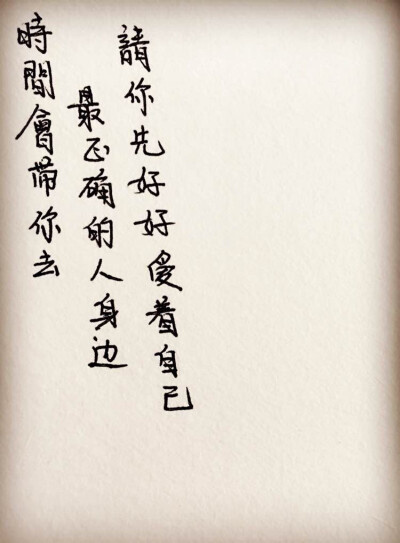 時間會带你去
最正确的人身边
請你先好好爱着自己